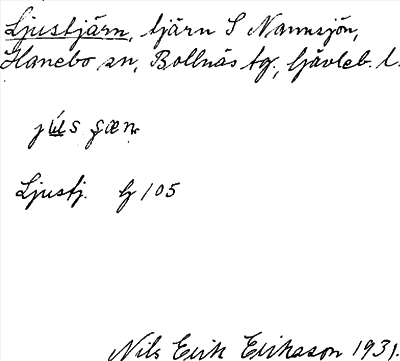 Ljustjärn, tjärn S Nannsjön,
Hanebo sn, Bollnäs tg, Gävleb. l.
Ljustj. G 105
Nils Erik Erikason 1931.